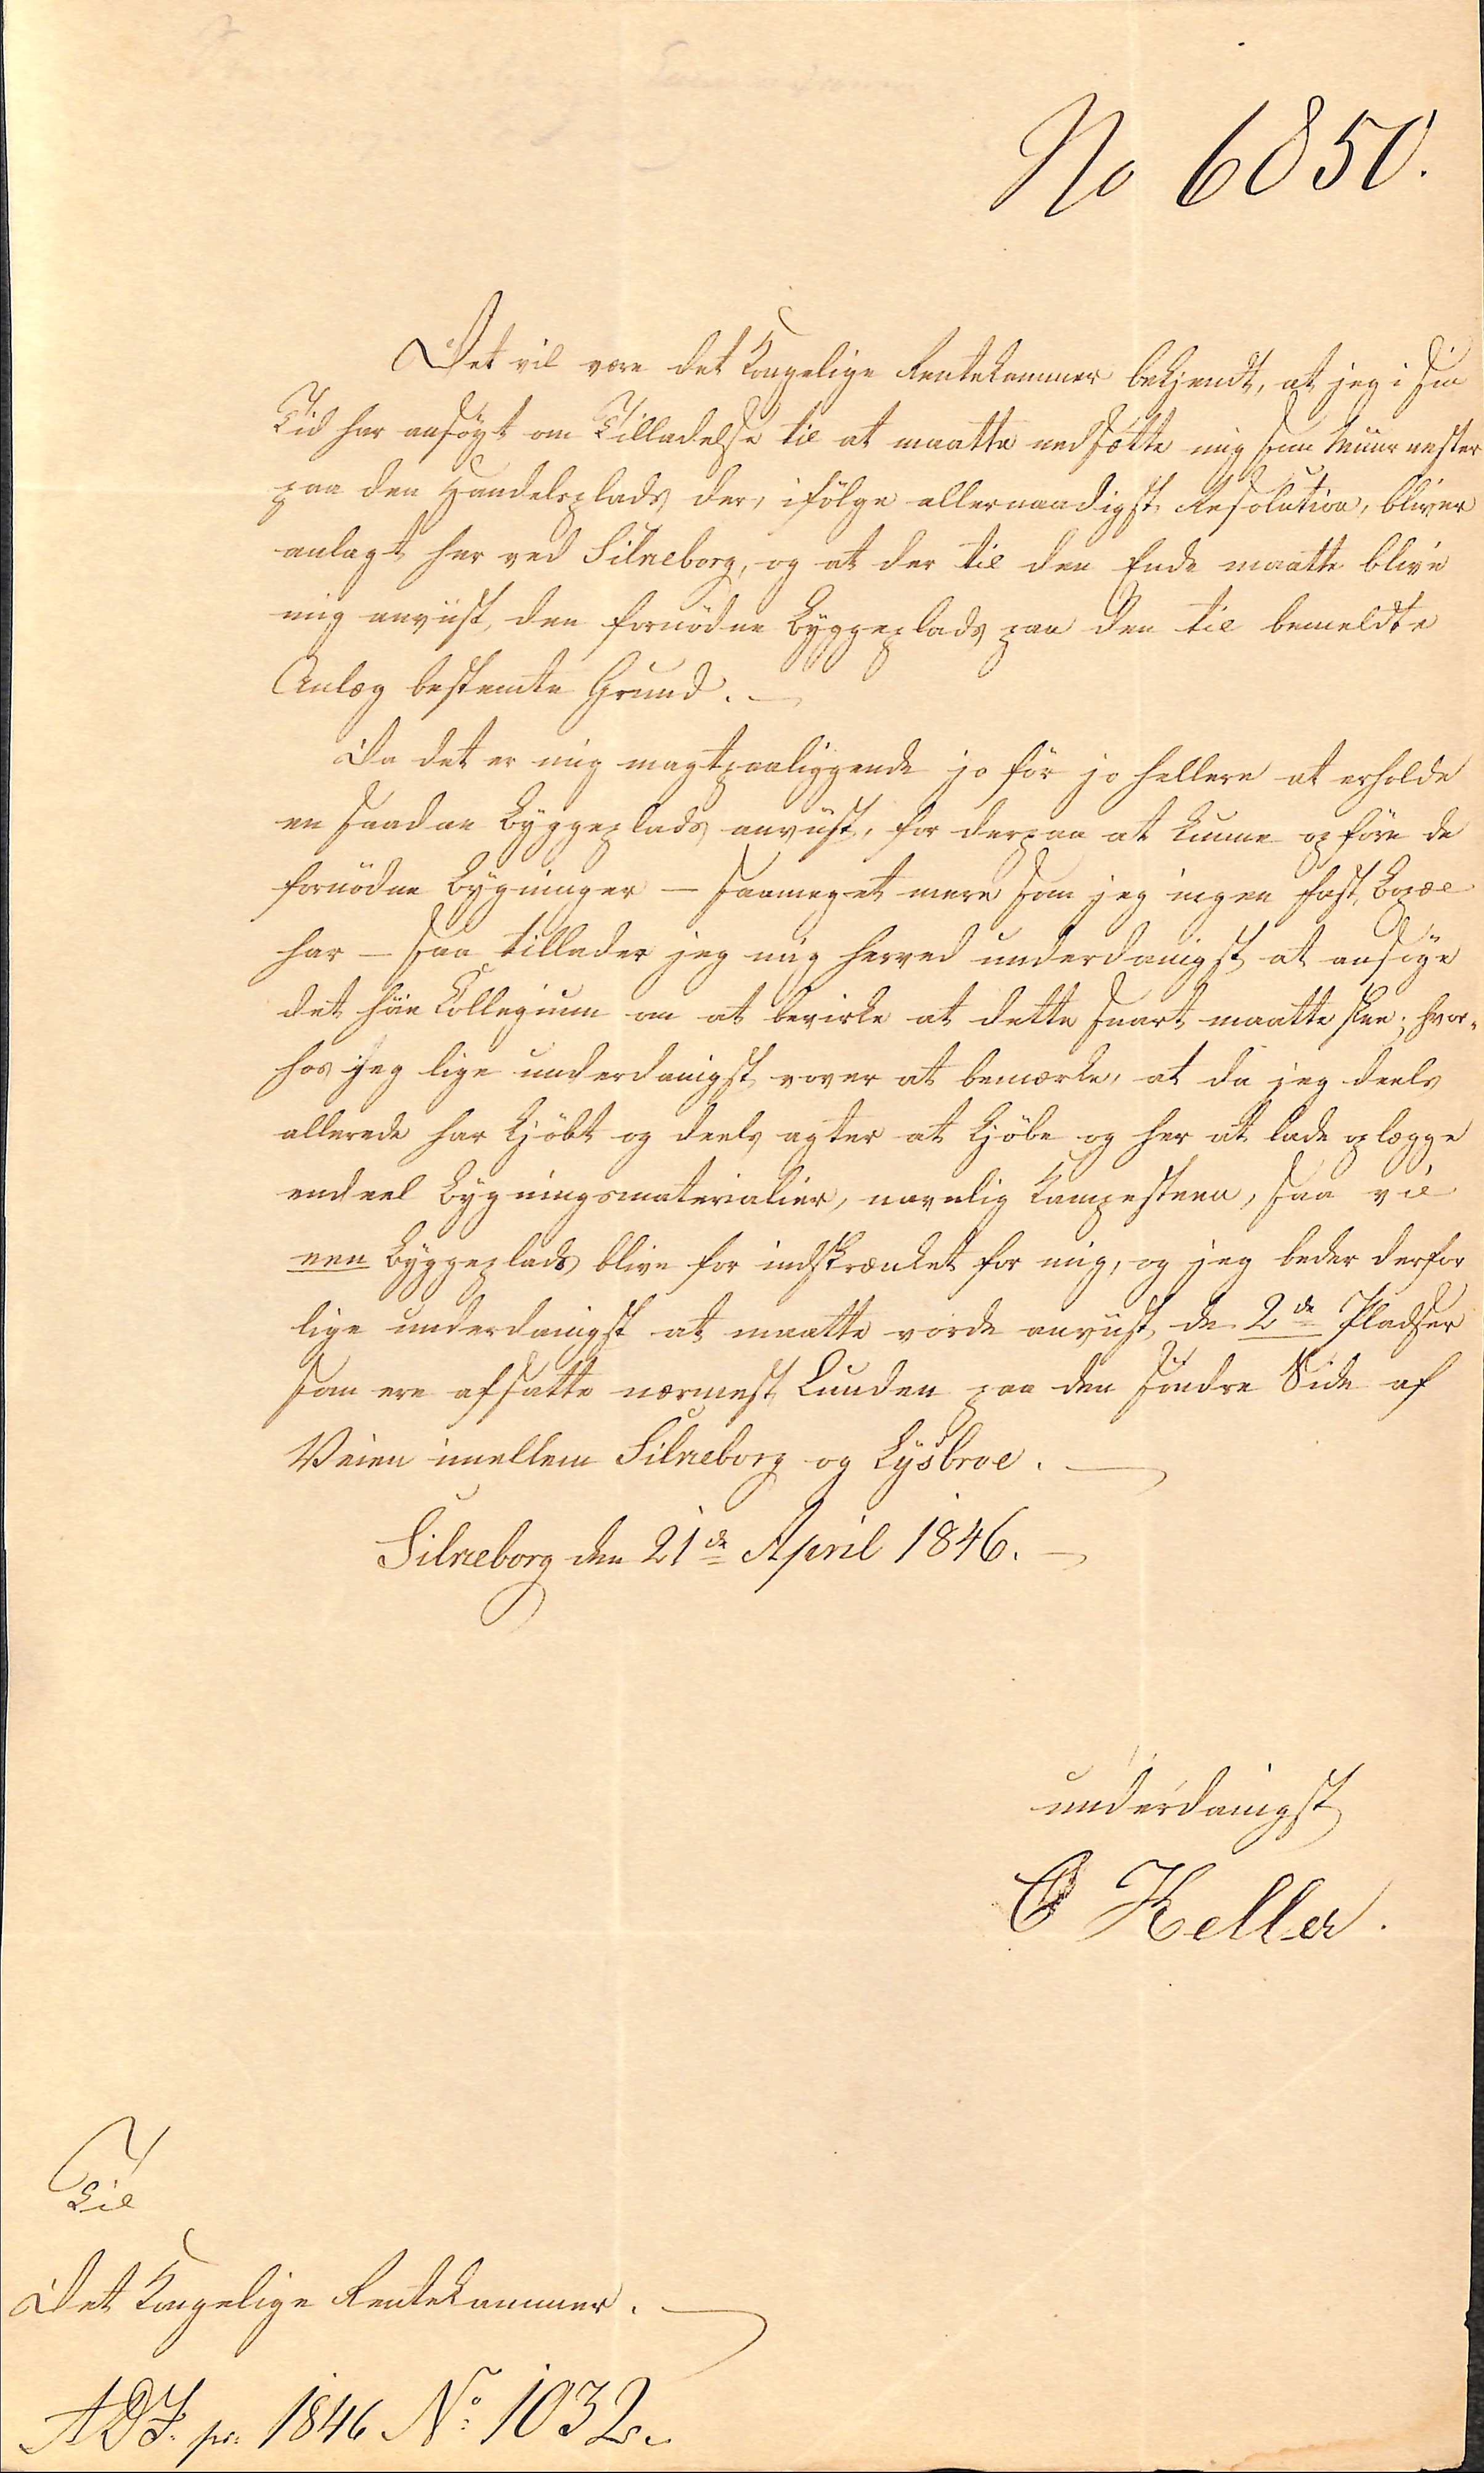 No 6850.
Det vil være det Kongelige Rentekammer bekjendt, at jeg i sin
Tid har ansøgt om Tilladelse til at maatte nedsætte mig som Muurmester
paa den Handelsplads der, ifølge allernaadigst Resolution, bliver
anlagt her ved Silkeborg, og at der til den Ende maatte blive
mig anviist, den fornødne Byggeplads paa den til bemeldte
Anlæg bestemte Grund. —
Da det er mig magtpaaliggende jo før jo hellere at erholde
en saadan Byggeplads anviist, for derpaa at kunne opføre de
fornødne Bygninger — saameget mere som jeg ingen fast Bopæl
har — saa tillader jeg mig herved underdanigst at ansøge
det høie Collegium om at bevirke at dette snart maatte skee; hvor-
hos jeg lige underdanigst vover at bemærke, at da jeg deels
allerede har kjøbt og deels agter at kjøbe og her at lade oplægge
endeel Bygningsmaterialier, navnlig Kampesteen, saa vil
een Byggeplads blive for indskrænket for mig, og jeg beder derfor
lige underdanigst at maatte vorde anviist de 2de Pladser
som ere afsatte nærmest Lunden paa den søndre Side af
Veien imellem Silkeborg og Lysbroe. —
Silkeborg den 21de April 1846. —
underdanigst
C Keller.
Til
Det Kongelige Rentekammer. —
ADJ. pr: 1846 No: 1032.